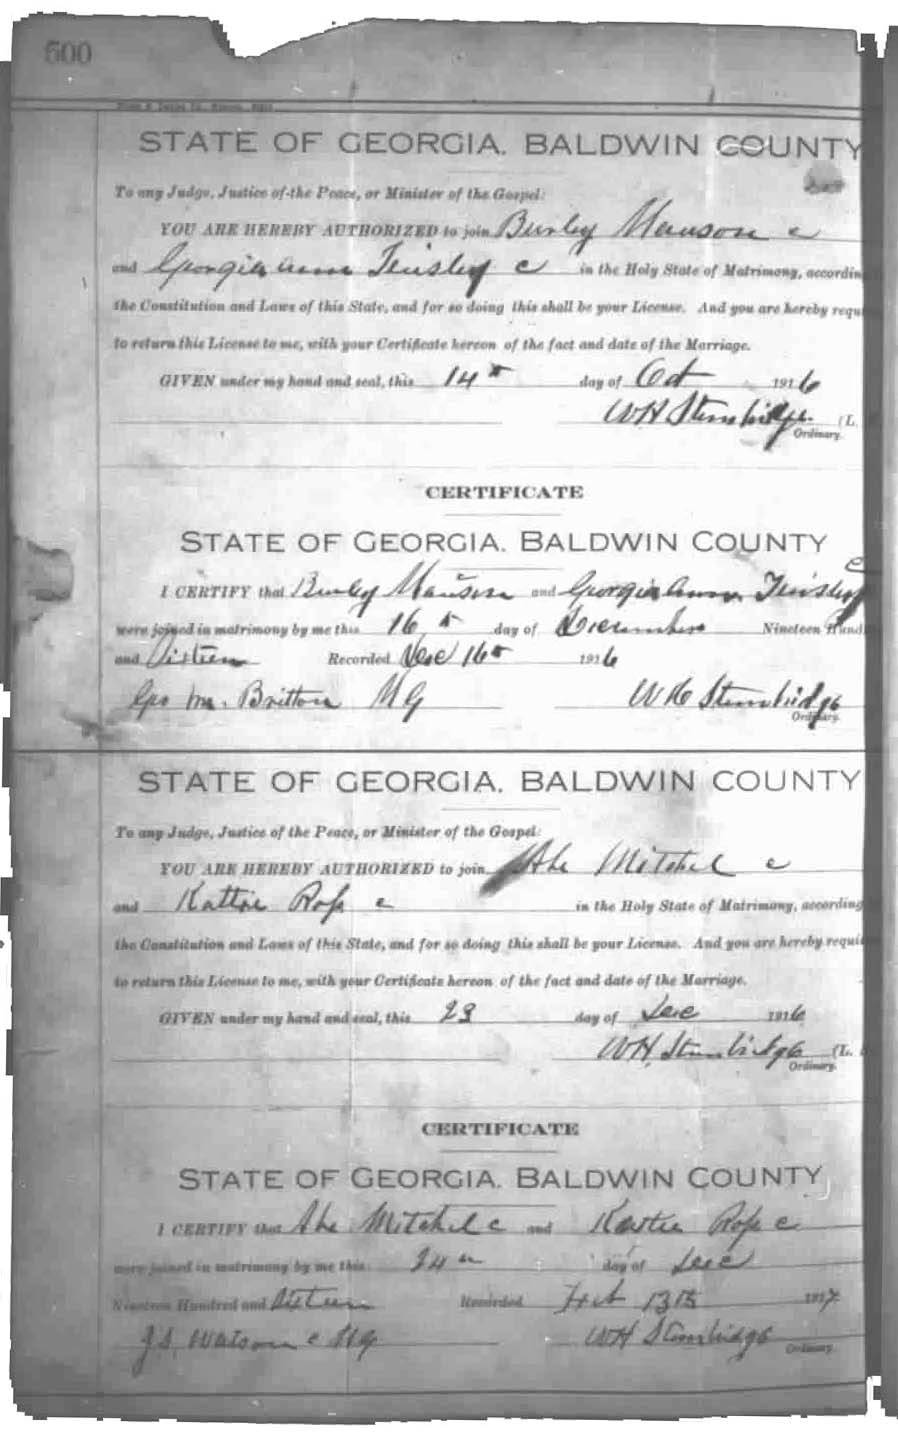 500
STATE OF GEORGIA. BALDWIN COUNTY
To any Judge, Justice of the Peace, or Minister of the Gospel:
YOU ARE HEREBY AUTHORIZED to join Burley Manson c
and Georgia Ann Tinsley c in the Holy State of Matrimony, accordin
the Constitution and Laws of this State, and for so doing this shall be your License. And you are hereby requ
to return this License to me, with your Certificate hereon of the fact and date of the Marriage.
GIVEN under my hand and seal, this 14th day of Oct 1916
WH Stembridge (L.
Ordinary.
CERTIFICATE
STATE OF GEORGIA. BALDWIN COUNTY
I CERTIFY that Burley Manson and Georgia Ann Tinsley c
were joined in matrimony by me this 16th day of December Nineteen Hund
and Sixteen Recorded Dec 16th 1916
Geo M. Britton MG WH Stembridge
Ordinary.
STATE OF GEORGIA. BALDWIN COUNTY
To any Judge, Justice of the Peace, or Minister of the Gospel:
YOU ARE HEREBY AUTHORIZED to join Abe Mitchel c
and Kattie c in the Holy State of Matrimony, according
the Constitution and Laws of this State, and for so doing this shall be your License. And you are hereby requi
to return this License to me, with your Certificate hereon of the fact and date of the Marriage.
GIVEN under my hand and seal, this 23 day of Dec 1916
WH Stembridge (L.
Ordinary.
CERTIFICATE
STATE OF GEORGIA. BALDWIN COUNTY
I CERTIFY that Abe Mitchel c and Kattie c
were joined in matrimony by me this 24th day of Dec
Nineteen Hundred and Sixteen Recorded Feb 13th 1917
J.S. Watson c MG WH Stembridge
Ordinary.